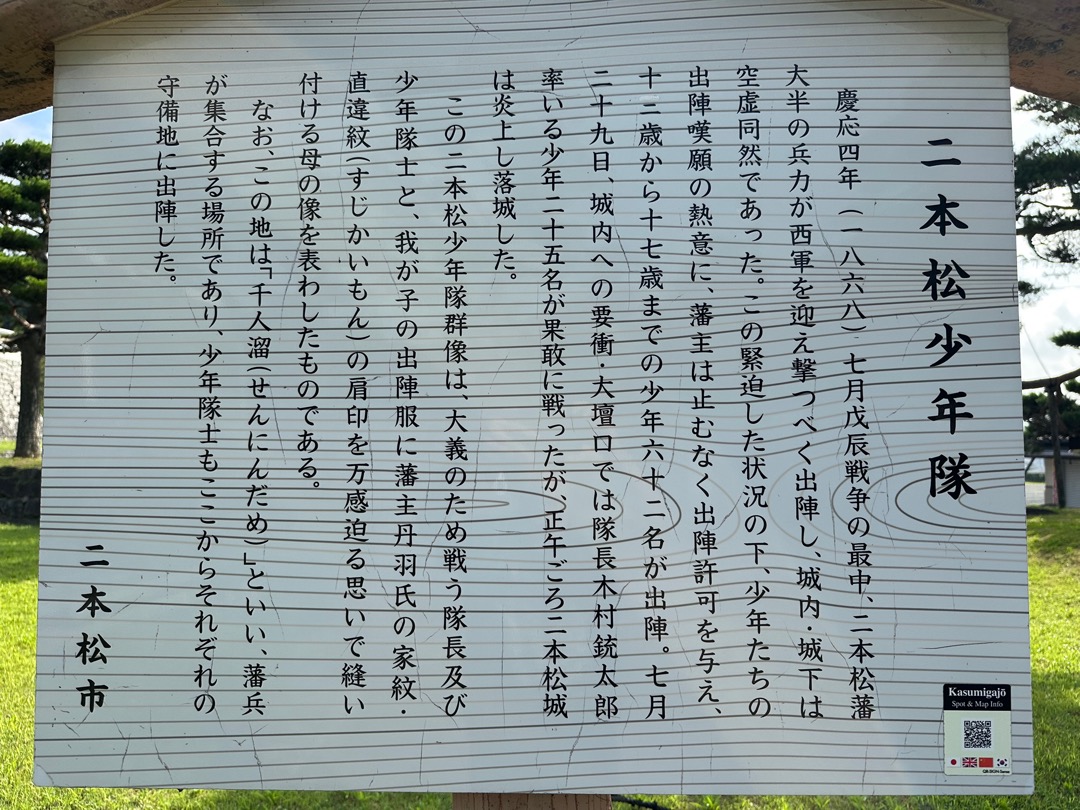 二本松少年隊
慶応四年(一八六八)七月戊辰戦争の最中、二本松藩
大半の兵力が西軍を迎え撃つべく出陣し、城内・城下は
空虚同然であった。この緊迫した状況の下、少年たちの
出陣嘆願の熱意に、藩主は止むなく出陣許可を与え、
十二歳から十七歳までの少年六十二名が出陣。七月
二十九日、城内への要衝・大壇口では隊長木村銃太郎
率いる少年二十五名が果敢に戦ったが、正午ごろ二本松城
は炎上し落城した。
この二本松少年隊群像は、大義のため戦う隊長及び
少年隊士と、我が子の出陣服に藩主丹羽氏の家紋・
直違紋(すじかいもん)の肩印を万感迫る思いで縫い
付ける母の像を表わしたものである。
なお、この地は「千人溜(せんにんだめ)」といい、藩兵
が集合する場所であり、少年隊士もここからそれぞれの
守備地に出陣した。
二本松市
Kasumigajō
Spot & Map Info